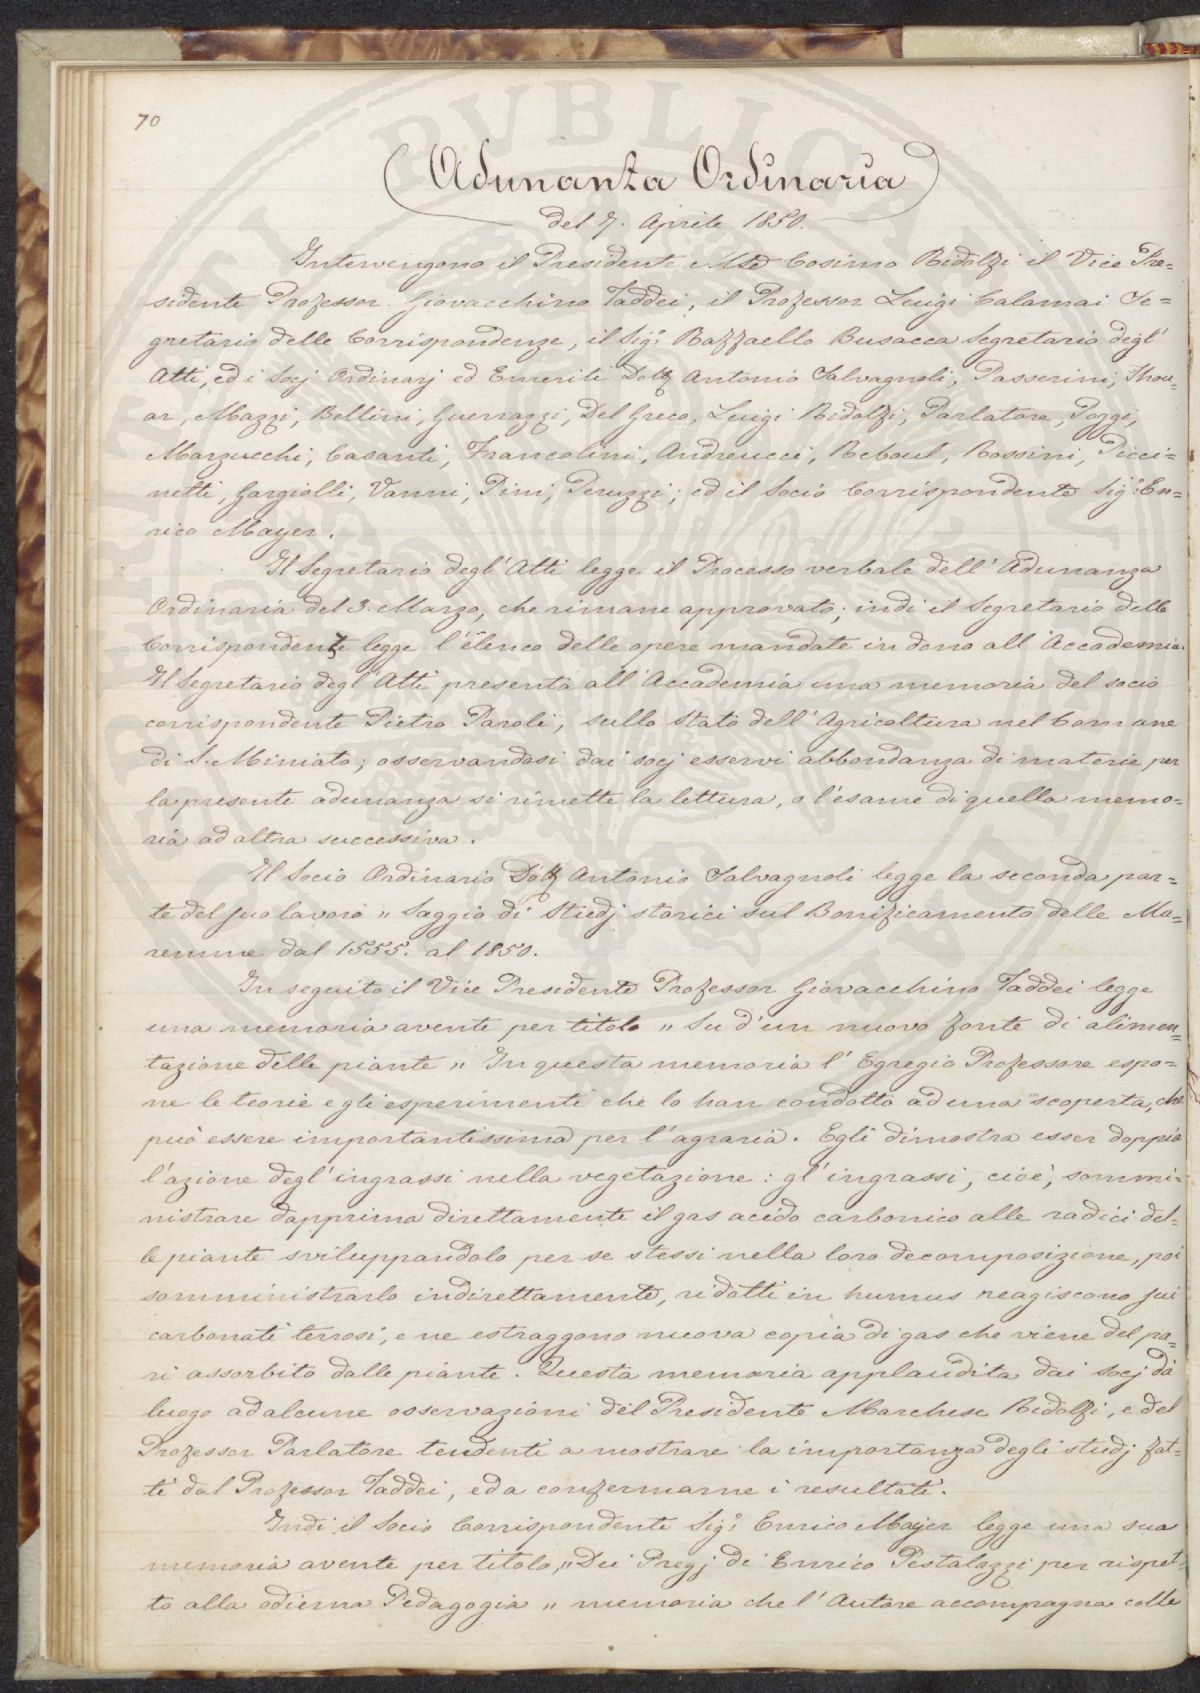 70
Adunanza Ordinaria
del 7. Aprile 1850.
Intervengono il Presidente Mse Cosimo Ridolfi il Vice Pre=
sidente Professor Giovacchino Taddei, il Professor Luigi Calamai Se=
gretario delle Corrispondenze, il Sigr Raffaello Busacca Segretario degl'
Atti, ed i Socj Ordinarj ed Emeriti Dott Antonio Salvagnoli, Passerini, Thou=
ar, Mazzi, Bellini, Guerrazzi, Del Greco, Luigi Ridolfi, Parlatore, Poggi,
Marzucchi, Casanti, Francolini, Andreucci, Reboul, Rossini, Picci=
netti, Gargiolli, Vanni, Pini, Peruzzi; ed il Socio Corrispondente Sigr En=
rico Mayer.
Il Segretario degl'Atti legge il Processo verbale dell'Adunanza
Ordinaria del 3. Marzo, che rimane approvato; indi il Segretario delle
Corrispondenze legge l'elenco delle opere mandate in dono all'Accademia.
Il Segretario degl'Atti presenta all'Accademia una memoria del socio
corrispondente Pietro Paroli, sullo Stato dell'Agricoltura nel Comune
di S. Miniato; osservandosi dai socj esservi abbondanza di materie per
la presente adunanza si rimette la lettura, o l'esame di quella memo=
ria ad altra successiva.
Il Socio Ordinario Dott Antonio Salvagnoli legge la seconda par=
te del suo lavoro „ Saggio di Studj storici sul Bonificamento delle Ma=
remme dal 1555. al 1850.
In seguito il Vice Presidente Professor Giovacchino Taddei legge
una memoria avente per titolo „ Su d'un nuovo fonte di alimen=
tazione delle piante „ In questa memoria l'Egregio Professore espo=
ne le teorie e gli esperimenti che lo han condotto ad una scoperta, che
può essere importantissima per l'agraria. Egli dimostra esser doppia
l'azione degl'ingrassi nella vegetazione: gl'ingrassi, cioè, sommi=
nistrare dapprima direttamente il gas acido carbonico alle radici del=
le piante sviluppandolo per se stessi nella loro decomposizione, poi
somministrarlo indirettamente, ridotti in humus reagiscono sui
carbonati terrosi, e ne estraggono nuova copia di gas che viene del pa=
ri assorbito dalle piante. Questa memoria applaudita dai socj dà
luogo ad alcune osservazioni del Presidente Marchese Ridolfi, e del
Professor Parlatore tendenti a mostrare la importanza degli studj fat=
ti dal Professor Taddei, ed a confermarne i resultati.
Indi il Socio Corrispondente Sigr Enrico Mayer legge una sua
memoria avente per titolo, „ Dei Pregj di Enrico Pestalazzi per rispet=
to alla odierna Pedagogia „ memoria che l'Autore accompagna colle